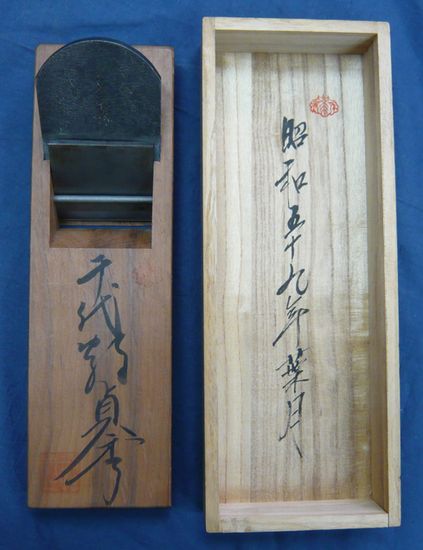 千代鶴貞秀
昭和五十九年葉月